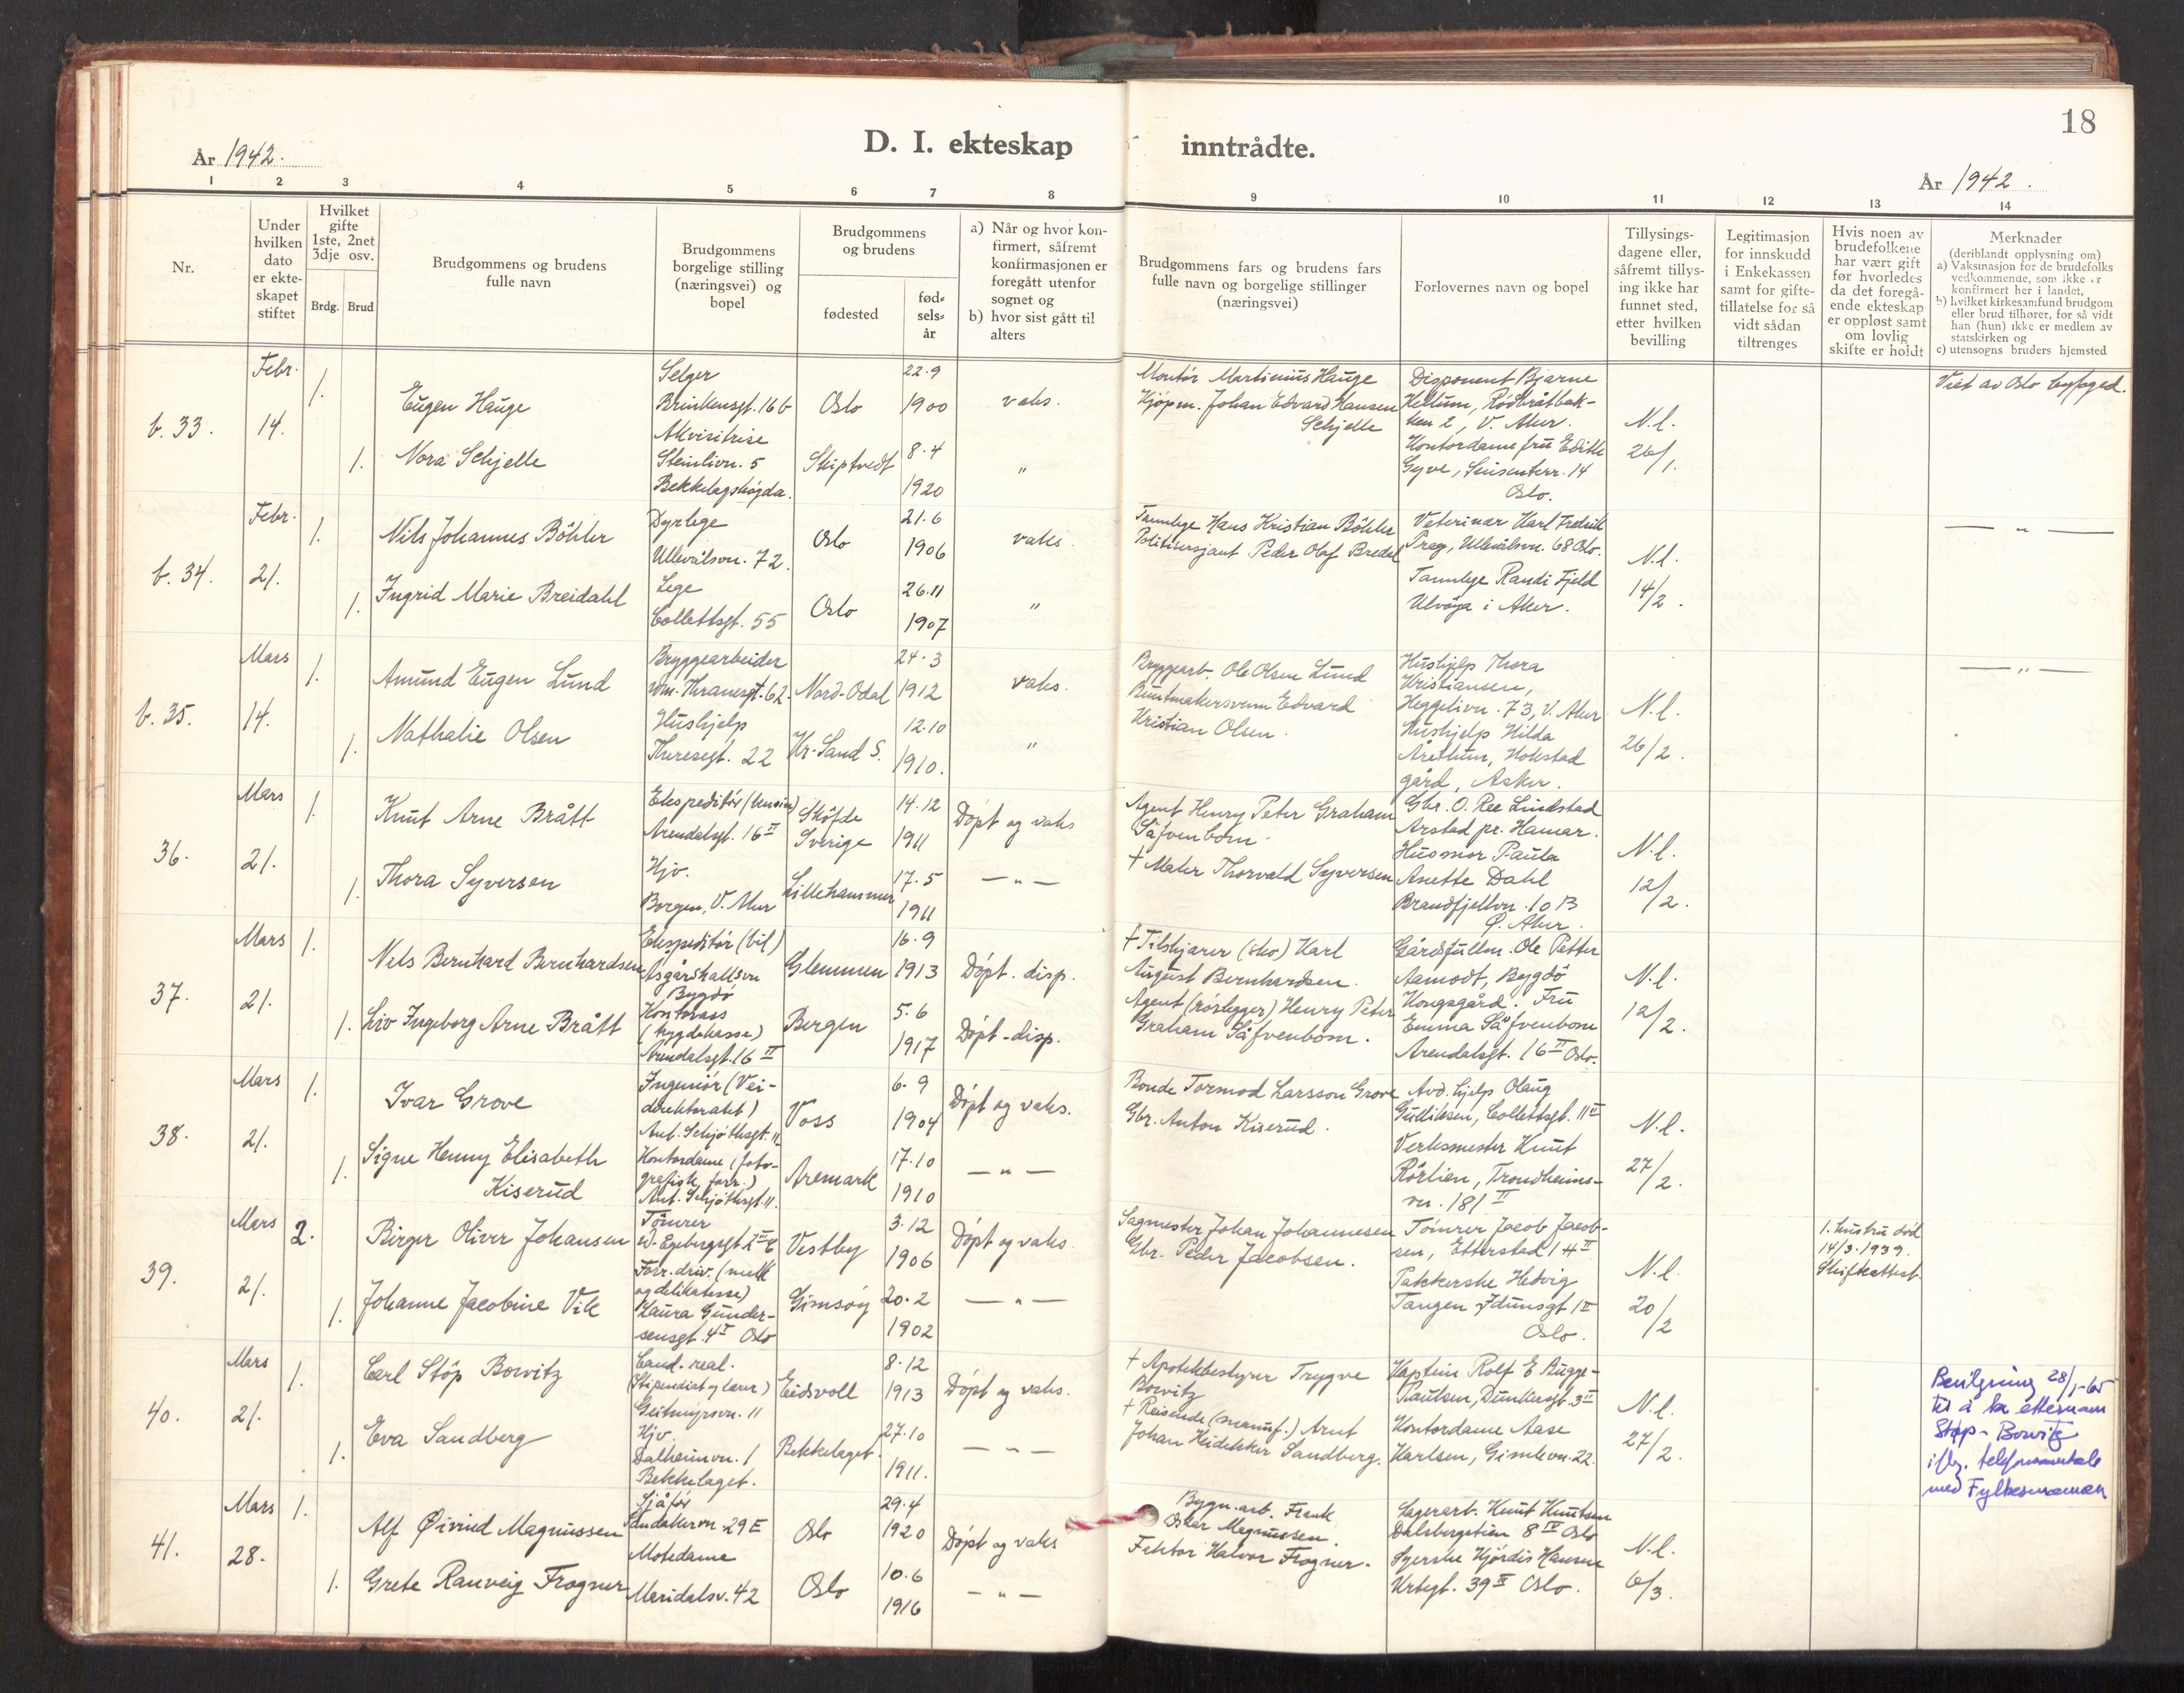 18
D. I. ekteskap inntrådte.
År 1942.
År 1942.
1 2 3 4 5 6 7 8 9 10 11 12 13 14
Nr.
Under hvilken dato er ekte-skapet stiftet
Hvilket gifte 1ste, 2net 3dje osv.
Brdg. Brud
Brudgommens og brudens fulle navn
Brudgommens borgelige stilling (næringsvei) og bopel
Brudgommens og brudens
fødested
fød-sels-år
a) Når og hvor kon-firmert, såfremt konfirmasjonen er foregått utenfor sognet og
b) hvor sist gått til alters
Brudgommens fars og brudens fars fulle navn og borgelige stillinger (næringsvei)
Forlovernes navn og bopel
Tillysings-dagene eller, såfremt tillys-ing ikke har funnet sted, etter hvilken bevilling
Legitimasjon for innskudd i Enkekassen samt for gifte-tillatelse for så vidt sådan tiltrenges
Hvis noen av brudefolkene har vært gift før hvorledes da det foregå-ende ekteskap er oppløst samt om lovlig skifte er holdt
Merknader
(deriblandt opplysning om)
a) Vaksinasjon for de brudefolks vedkommende, som ikke er konfirmert her i landet,
b) hvilket kirkesamfund brudgom eller brud tilhører, for så vidt han (hun) ikke er medlem av statskirken og
c) utensogns bruders hjemsted
b. 33. Febr. 14. 1. Eugen Hauge
Selger Brinkensgt. 16 b Oslo 22.9 1900 vaks.
1. Nora Schjelle
Akvisitrise Steinlivn. 5 Bekkelagshøgda. Skiptvedt 8.4 1920 "
Montør Martinius Hauge
Kjøpm. Johan Edvard Hansen Schjelle
Disponent Bjarne Hellum, Rødbråtbak-ken 2, V. Aker.
Kontordame fru Edith Gyve, Sinsenterr. 14 Oslo.
N.l. 26/1.
Viet av Oslo byfoged.
b. 34. Febr. 21. 1. Nils Johannes Böhler
Dyrlege Ullevålsvn. 72. Oslo 21.6 1906 vaks
1. Ingrid Marie Breidahl
Lege Collettsgt. 55 Oslo 26.11 1907 "
Tannlege Hans Kristian Böhler
Politisersjant Peder Olaf Bredal
Veterinær Karl Fredrik Prag, Ullevålsvn. 68 Oslo.
Tannlege Randi Fjeld Ulvøya i Aker.
N.l. 14/2.
— " —
b. 35. Mars 14. 1. Amund Eugen Lund
Bryggearbeider Wm. Thranesgt. 62. Nord-Odal 24.3 1912 vaks.
1. Nathalie Olsen
Hushjelp Theresegt. 22 Kr. Sand S. 12.10 1910. "
Bryggearb. Ole Olsen Lund
Buntmakersvenn Edvard Kristian Olsen.
Hushjelp Thora Kristiansen, Heggelivn. 73, V. Aker
Hushjelp Hilda Årethun, Holestad gård, Asker.
N.l. 26/2.
— " —
36. Mars 21. 1. Knut Arne Brått
Ekspeditør Arendalsgt. 16 II Sköfde Sverige 14.12 1911 Döpt og vaks
1. Thora Syversen
Hjv. Borgen, V. Aker Lillehammer 17.5 1911 — " —
Agent Henry Peter Graham Säfvenbom.
† Maler Thorvald Syversen
Gbr. O. Ree Lindstad Arstad pr. Hamar.
Husmor Paula Anette Dahl Brandfjellvn. 10 B Ø. Aker.
N.l. 12/2.
37. Mars 21. 1. Nils Bernhard Bernhardsen
Ekspeditør (bil) Asgårshallsvn Bygdø Glemmen 16.9 1913 Döpt. disp.
1. Liv Ingeborg Arne Brått
Kontorass (trygdekasse) Arendalsgt. 16 II Bergen 5.6 1917 Döpt-disp.
† Tilskjærer (sko) Karl August Bernhardsen.
Agent (rørlegger) Henry Peter Graham Säfvenbom.
Gårdsfullm. Ole Petter Aamodt, Bygdø Kongsgård.
Fru Emma Säfvenbom Arendalsgt. 16 II Oslo.
N.l. 12/2.
38. Mars 21. 1. Ivar Grove
Ingeniør (Vei-direktoratet) Ant. Schjøthsgt. 11 Voss 6.9 1904 Döpt og vaks.
1. Signe Henny Elisabeth Kiserud
Kontordame (foto-grafisk forr.) Ant. Schjøthsgt. 11. Aremark 17.10 1910 — " —
Bonde Tormod Larsson Grove
Gbr. Anton Kiserud.
Avd. hjelp Olaug Gulliksen, Collettsgt. 11 II
Verksmester Knut Rörlien, Trondheims-vn. 181 II
N.l. 27/2.
39. Mars 21. 2. Birger Oliver Johansen
Tömrer W. Egebergsgt. 2 III C Vestby 3.12 1906 Döpt og vaks.
1. Johanne Jacobine Vik
Forr. driv. (melk og delikatesse) Laura Gunder-sensgt. 4 I Oslo Gimsøy 20.2 1902 — " —
Sagmester Johan Johannesen
Gbr. Peder Jacobsen.
Tömrer Jacob Jacob-sen, Etterstad 1 H II
Pakkerske Hedvig Tangen Idunsgt 1 II Oslo.
N.l. 20/2
1. hustru død 14/3.1939. Skifteattest.
40. Mars 21. 1. Carl Støp Borvitz
Cand. real. (Stipendiat og lærer) Geitmyrsvn. 11 Eidsvoll 8.12 1913 Döpt og vaks.
1. Eva Sandberg
Hjv. Dalheimvn. 1 Bekkelaget. Bekkelaget. 27.10 1911. — " —
† Apotekbestyrer Trygve Borvitz
† Reisende (manuf.) Arnt Johan Heidekker Sandberg.
Kaptein Rolf E Bugge-Paulsen, Dunkersgt. 3 II
Kontordame Aase Karlsen, Gimlevn. 22.
N.l. 27/2.
Bevilgning 28/1-65 til å ha etternavn Støp-Borvitz iflg. telefonsamtale med Fylkesmannen
41. Mars 28. 1. Alf Øivind Magnussen
Sjåfør Sandakervn 29 E Oslo 29.4 1920 Döpt og vaks
1. Grete Ranveig Frogner
Motedame Maridalsv. 42 Oslo 10.6 1916 — " —
Bygn. arb. Frank Oskar Magnussen.
Faktor Halvor Frogner.
Lagerarb. Knut Knutsen Dalsbergstien 8 IV Oslo
Syerske Hjördis Hansen Urtegt. 39 II Oslo.
N.l. 6/3.